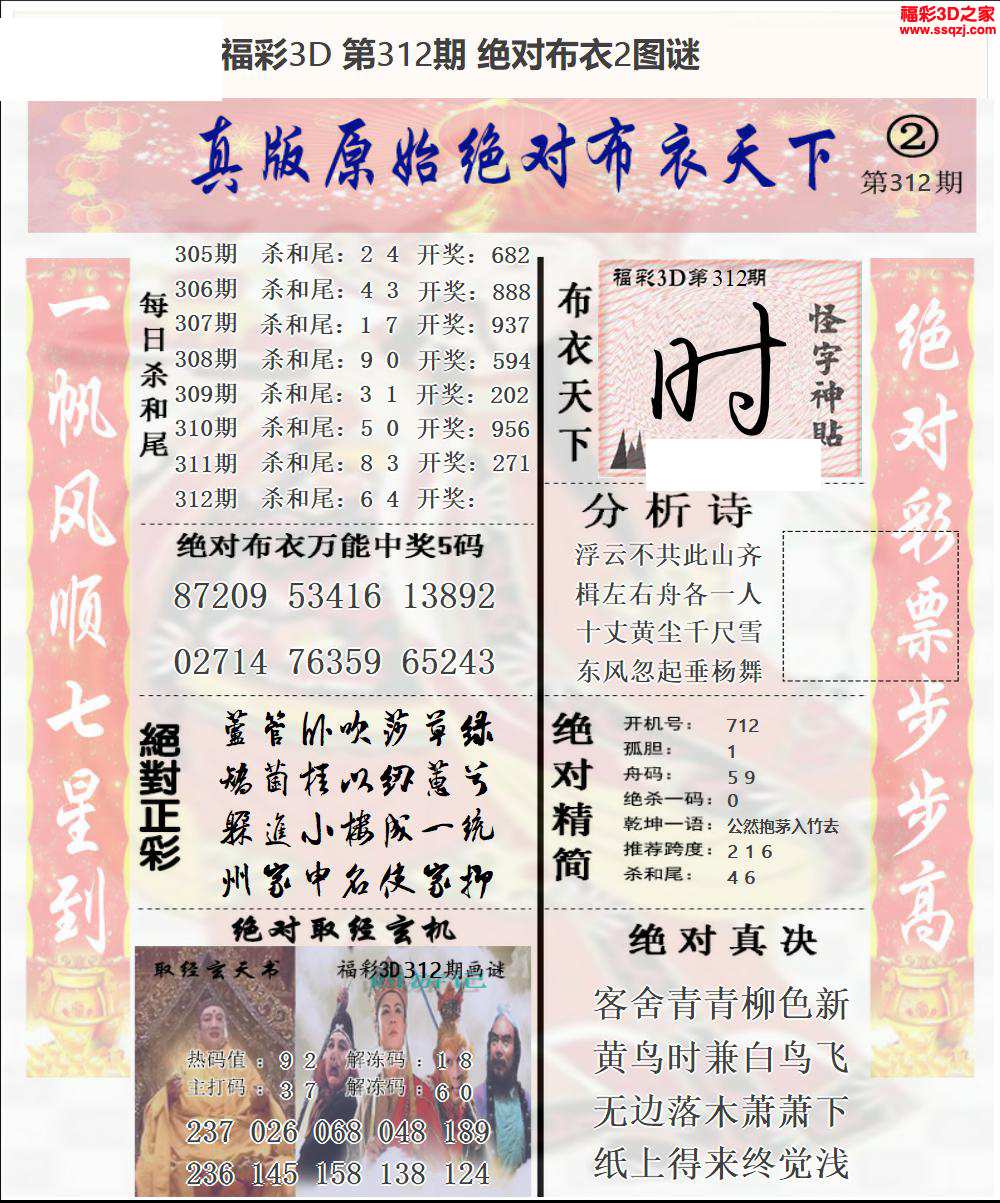 福彩3D之家
www.ssqzj.com
福彩3D 第312期 绝对布衣2图谜
真版原始绝对布衣天下
②
第312期
一帆风顺七星到
每日杀和尾
305期 杀和尾：2 4 开奖：682
306期 杀和尾：4 3 开奖：888
307期 杀和尾：1 7 开奖：937
308期 杀和尾：9 0 开奖：594
309期 杀和尾：3 1 开奖：202
310期 杀和尾：5 0 开奖：956
311期 杀和尾：8 3 开奖：271
312期 杀和尾：6 4 开奖：
绝对布衣万能中奖5码
87209 53416 13892
02714 76359 65243
絕對正彩
蘆管卧吹莎草绿
菌桂以纫蕙兮
躲進小楼成一统
州家申名使家抑
绝对取经玄机
取经玄天书
福彩3D312期画谜
热码值：9 2 解冻码：1 8
主打码：3 7 解冻码：6 0
237 026 068 048 189
236 145 158 138 124
布衣天下
福彩3D第312期
时
怪字神贴
分析诗
浮云不共此山齐
楫左右舟各一人
十丈黄尘千尺雪
东风忽起垂杨舞
绝对精简
开机号： 712
孤胆： 1
舟码： 5 9
绝杀一码：0
乾坤一语：公然抱茅入竹去
推荐跨度：2 1 6
杀和尾： 4 6
绝对真决
客舍青青柳色新
黄鸟时兼白鸟飞
无边落木萧萧下
纸上得来终觉浅
绝对彩票步步高